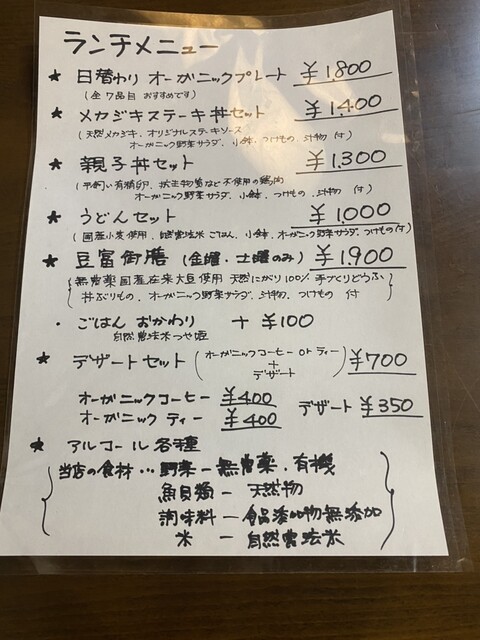 ランチメニュー
★ 日替わり オーガニックプレート ¥1,800
(全7品目 おすすめです)
★ メカジキステーキ丼セット ¥1,400
(天然メカジキ、オリジナルステーキソース
オーガニック野菜サラダ、小鉢、つけもの、汁物 付)
★ 親子丼セット ¥1,300
(平飼い有精卵、抗生物質など不使用の鶏肉
オーガニック野菜サラダ、小鉢、つけもの、汁物 付)
★ うどんセット ¥1,000
(国産小麦使用、自然農法米ごはん、小鉢、オーガニック野菜サラダ、つけもの付)
★ 豆富御膳 (金曜、土曜のみ) ¥1,900
(無農薬国産在来大豆使用 天然にがり100% 手づくりどうふ
丼ぶりもの、オーガニック野菜サラダ、汁物、つけもの 付)
・ ごはん おかわり + ¥100
自然農法米つや姫
★ デザートセット (オーガニックコーヒー or ティー + デザート) ¥700
オーガニックコーヒー ¥400
オーガニック ティー ¥400 デザート ¥350
★ アルコール各種
当店の食材… 野菜ー無農薬、有機
魚貝類ー 天然物
調味料ー食品添加物無添加
米 ー 自然農法米